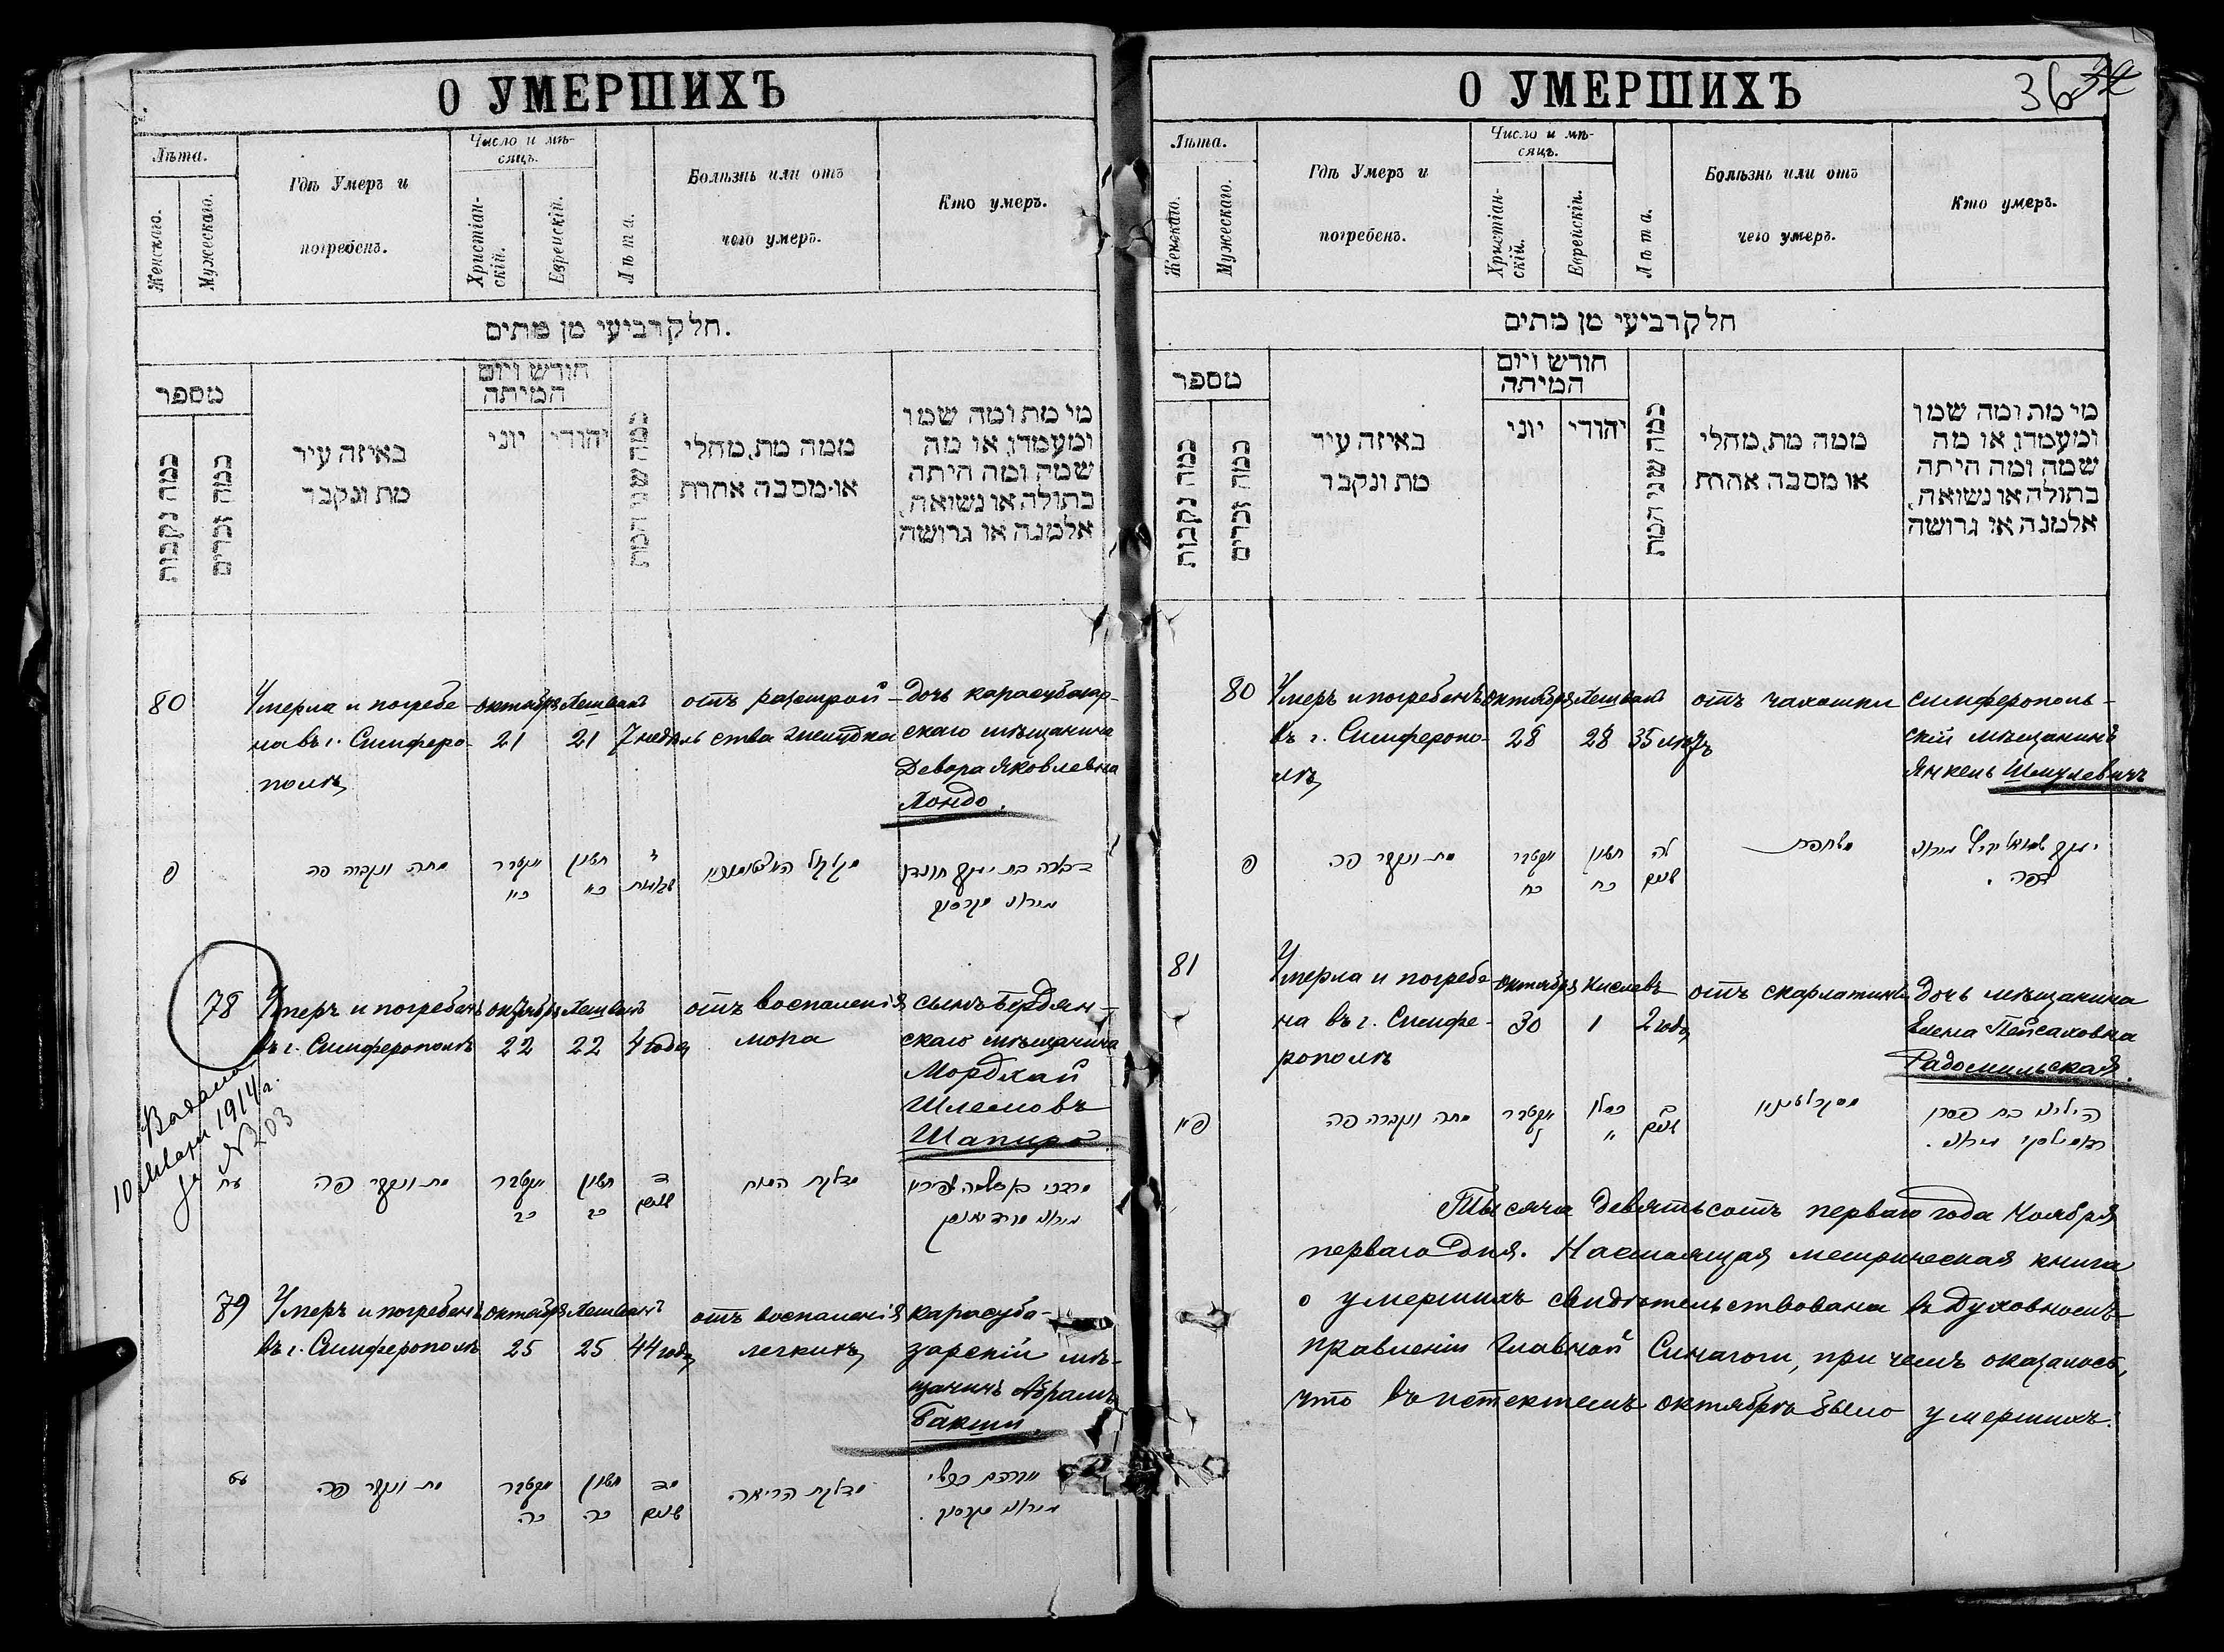 О УМЕРШИХЪ
Лѣта.
Женскаго.
Мужескаго.
Гдѣ Умеръ и
погребенъ.
Число и мѣ-
сяцъ.
Христіан-
скій.
Еврейскій.
Лѣта.
Болѣзнь или отъ
чего умеръ.
Кто умеръ.
חלק רביעי מן מתים.
מספר
כמה נקבות
כמה זכרים
באיזה עיר
מת ונקבר
חודש ויום
המיתה
יוני
יהודי
כמה שני המת
ממה מת, מחלי
או מסבה אחרת
מי מת ומה שמו
ומעמדו, או מה
שמה ומה היתה
בתולה או נשואה,
אלמנה או גרושה
80
Умерла и погребе-
на въ г. Симферо-
полѣ
октября
21
Хешванъ
21
7 недѣль
отъ разстрой-
ства желудка
дочь карасубазар-
скаго мѣщанина
Девора Яковлевна
Хондо.
פ
מתה ונקברה פה
חשון
78
Умеръ и погребенъ
въ г. Симферополѣ
октября
22
Хешванъ
22
4 года
отъ воспаленія
мозга
сынъ Бердян-
скаго мѣщанина
Мордхай
Шлемовъ
Шапиро
10 Марта 1914 г.
за № 203
עח
מת ונקבר פה
חשון
כב
דלקת המוח
79
Умеръ и погребенъ
въ г. Симферополѣ
октября
25
Хешванъ
25
44 года
отъ воспаленія
легкихъ
карасуба-
зарскій мѣ-
щанинъ Абрамъ
Бакши.
עט
מת ונקבר פה
חשון
כה
דלקת הריאה
О УМЕРШИХЪ
36
Лѣта.
Женскаго.
Мужескаго.
Гдѣ Умеръ и
погребенъ.
Число и мѣ-
сяцъ.
Христіан-
скій.
Еврейскій.
Лѣта.
Болѣзнь или отъ
чего умеръ.
Кто умеръ.
חלק רביעי מן מתים
מספר
כמה נקבות
כמה זכרים
באיזה עיר
מת ונקבר
חודש ויום
המיתה
יוני
יהודי
כמה שני המת
ממה מת, מחלי
או מסבה אחרת
מי מת ומה שמו
ומעמדו, או מה
שמה ומה היתה
בתולה או נשואה,
אלמנה או גרושה
80
Умеръ и погребенъ
въ г. Симферопо-
лѣ
октября
28
Хешванъ
28
35 лѣтъ
отъ чахотки
симферополь-
скій мѣщанинъ
Янкель Шмулевичъ
פ
מת ונקבר פה
חשון
כח
לה
שנים
משחפת
81
Умерла и погребе-
на въ г. Симфе-
рополѣ
октября
30
Кислевъ
1
2 года
отъ скарлатины
дочь мѣщанина
Пейсаховна
Радомильская.
מתה ונקברה פה
כסלו
ב
שנים
Тысяча девятьсотъ перваго года Ноября
перваго дня. Настоящая метрическая книга
о умершихъ свидѣтельствована въ Духовномъ
правленіи Главной Синагоги, при чемъ оказалось,
что въ истекшемъ октябрѣ было умершихъ: